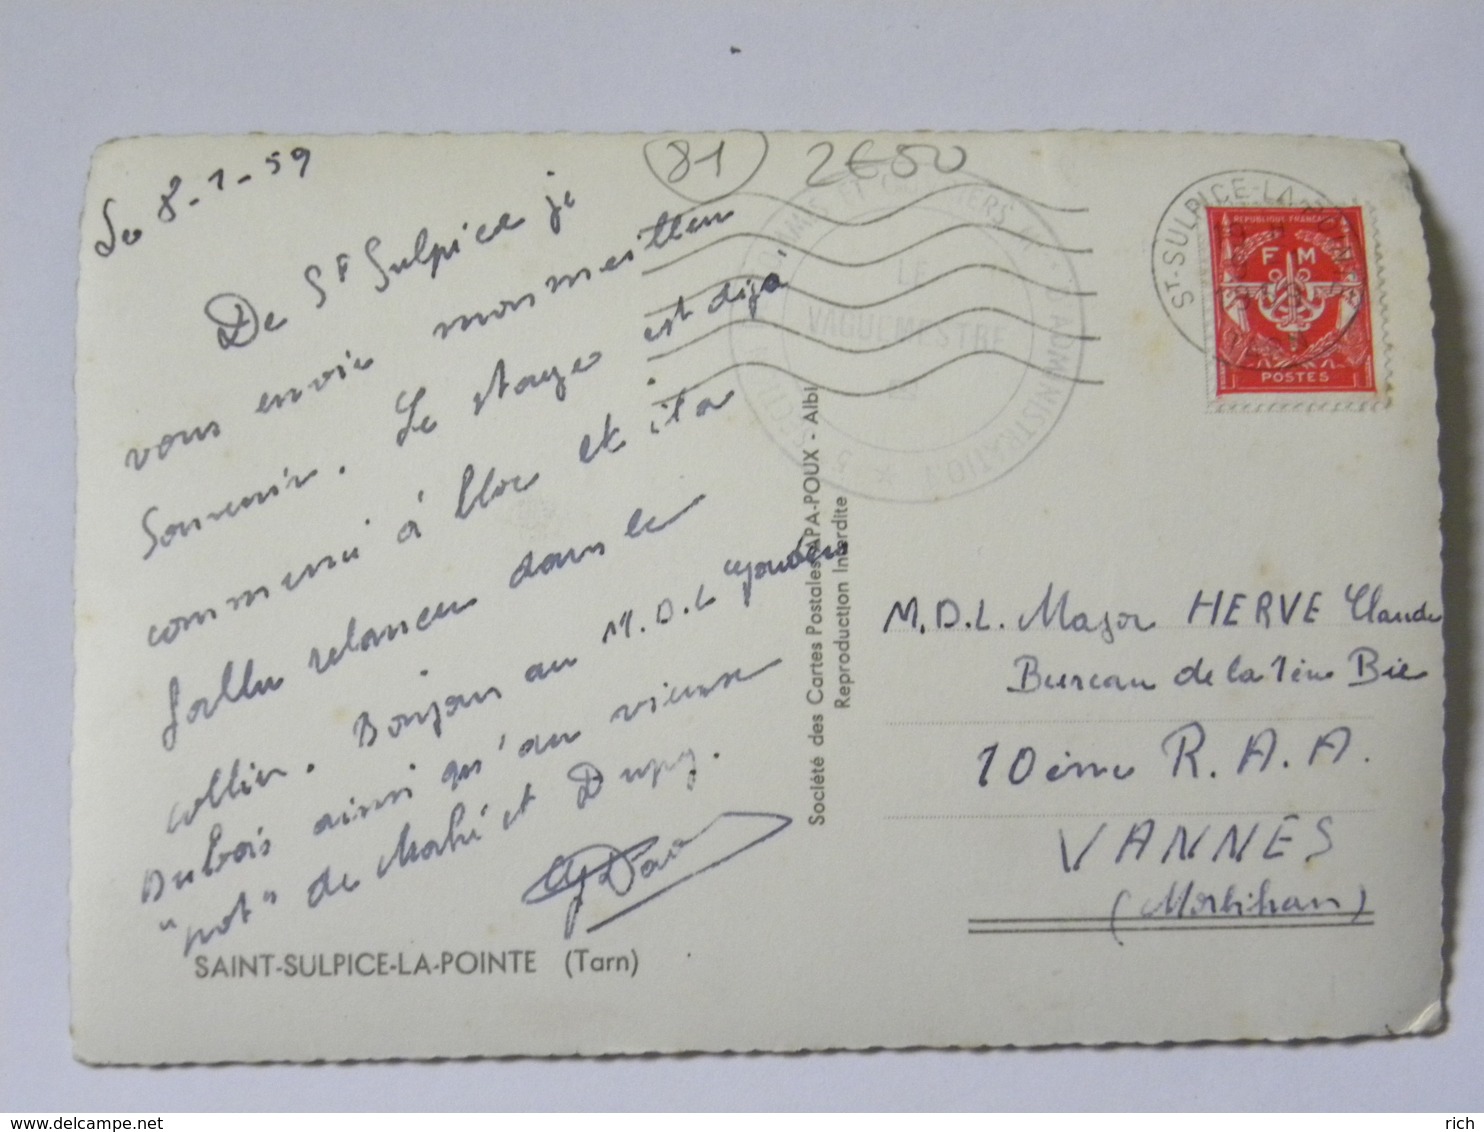 Le 8-1-59
De St Sulpice je
vous envoie mon meilleur
Souvenir. Le stage est déjà
commencé à bloc et il a
fallu relancer dans le
collier. Bonjour au M.D.L
Dubois ainsi qu'au vieux
"pot" de Mahé et Dupuy.
SAINT-SULPICE-LA-POINTE (Tarn)
81
2€50
LE
VAGUEMESTRE
D'ADMINISTRATION
ST-SULPICE-LA-POINTE
REPUBLIQUE FRANÇAISE
F M
POSTES
Société des Cartes Postales APA-POUX - Albi
Reproduction Interdite
M.D.L. Major HERVE Claude
Bureau de la 1ère Bie
10ème R.A.A.
VANNES
(Morbihan)
delcampe.net
rich